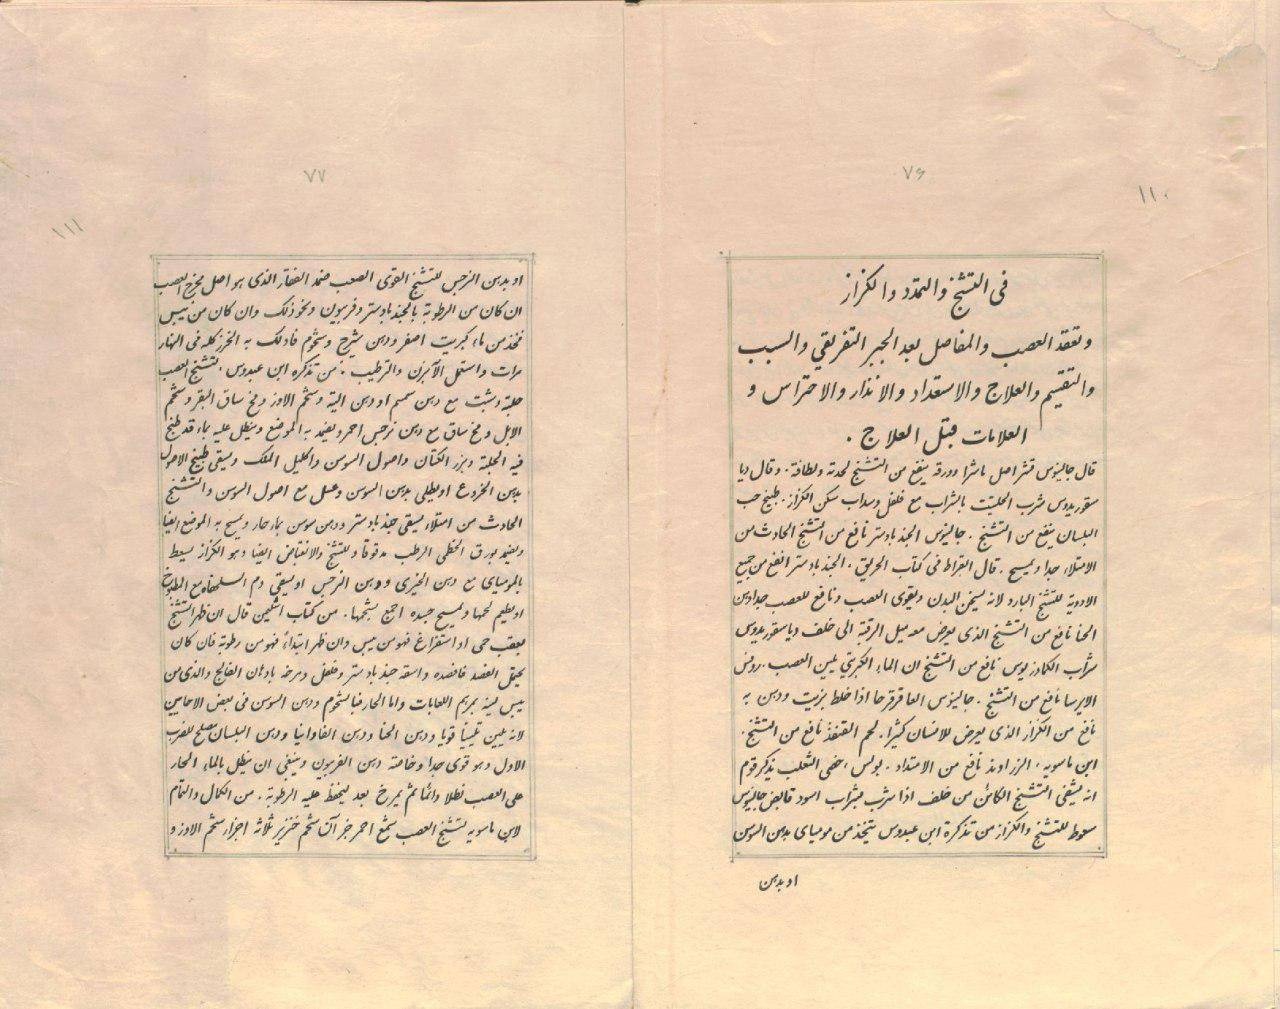 ٧۶
١١٠
في التشنج والتمدد والكزاز
وتعقد العصب والمفاصل بعد الجبر التفريقي والسبب
والتقسيم والعلاج والاستعداد والانذار والاحتراس و
العلامات قبل العلاج .
قال جالينوس قشر اصل باشرا وورقه ينفع من التشنج لحدته ولطافته . وقال ديا
سقوريدوس شرب الحلتيت بالشراب مع فلفل وسداب سكن الكزاز . طبيخ حب
البلسان ينفع من التشنج . جالينوس الجندبادستر نافع من التشنج الحادث من
الامتلاء جدا وتمسيح . قال القراط في كتاب الحريق . الجندبادستر انفع من جميع
الادوية للتشنج البارد لانه يسخن البدن ويقوى العصب ونافع للعصب جدا دهن
الحنا نافع من التشنج الذى يعرض معه ميل الرقبة الى خلف دياسقوريدوس
شراب الكمادريوس نافع من التشنج ان الماء الكبريتي يلين العصب . روفس
الايرسا نافع من التشنج . جالينوس العاقرقرحا اذا خلط بزيت ودهن به
نافع من الكزاز الذى يعرض للانسان كثيرا . لحم القنفذ نافع من التشنج .
ابن ماسويه . الزراوند نافع من الامتداد . بولس ، خصى الثعلب يذكر قوم
انه يشفى التشنج الكائن من خلف اذا شرب بشراب اسود قابض جالينوس
سعوط للتشنج والكزاز من تذكرة ابن عبدوس يتخذ من موميائى بدهن السوسن
او بدهن
٧٧
١١١
او بدهن النرجس للتشنج القوى الصعب ضمد الفقار الذى هو اصل مخرج العصب
ان كان من الرطوبة بالجندبادستر وفربيون ونحو ذلك وان كان من يبس
فخذ من ماء كبريت اصفر ودهن شيرج وشحوم فادلك به الخرز كله فى النهار
مرات واستعمل الآبزن والترطيب . من تذكره ابن عبدوس . لتشنج العصب
حلبة وشبت مع دهن سمسم او دهن الية وشحم الاوز ومخ ساق البقر وشحم
الابل ومخ ساق مع دهن نرجس احمر ويضمد به الموضع وينطل عليه بماء قد طبخ
فيه الحلبة وبزر الكتان واصول السوسن واكليل الملك ويسقى طبيخ الاصول
بدهن الخروع او يطلى بدهن السوسن وعسل مع اصول السوسن والتشنج
الحادث من امتلاء يسقى جندبادستر ودهن سوسن بماء حار ويمسح به الموضع ايضا
ويضمد بورق الخطمى الرطب مدقوقا وللتشنج والانقباض ايضا وهو الكزاز يسعط
بالموميائى مع دهن الخيرى ودهن النرجس او يسقى دم السلحفاة مع المطبوخ
او يطعم لحمها ويمسح جسده اجمع بشحمها . من كتاب قال ان ظهر التشنج
بعقب حمى او استفراغ فهو من يبس وان ظهر ابتداءً فهو من رطوبة فان كان
يحتمل الفصد فافصده واسقه جندبادستر وفلفل ومرخه بادهان الفالج والذى من
يبس لينه بمريم اللعابات واما الحار فبالشحوم ودهن السوسن فى بعض الاحايين
لانه يلين تليينا قويا ودهن الحنا ودهن الفاوانيا ودهن البلسان يصلح للضرب
الاول وهو قوى جدا وخاصة دهن الفربيون وينبغى ان ينطل بالماء الحار
على العصب نطلا دائما ثم يمرخ بعد ليحفظ عليه الرطوبة . من الكمال والتمام
لابن ماسويه لتشنج العصب شمع احمر جزآن شحم خنزير ثلاثة اجزاء شحم الاوز و